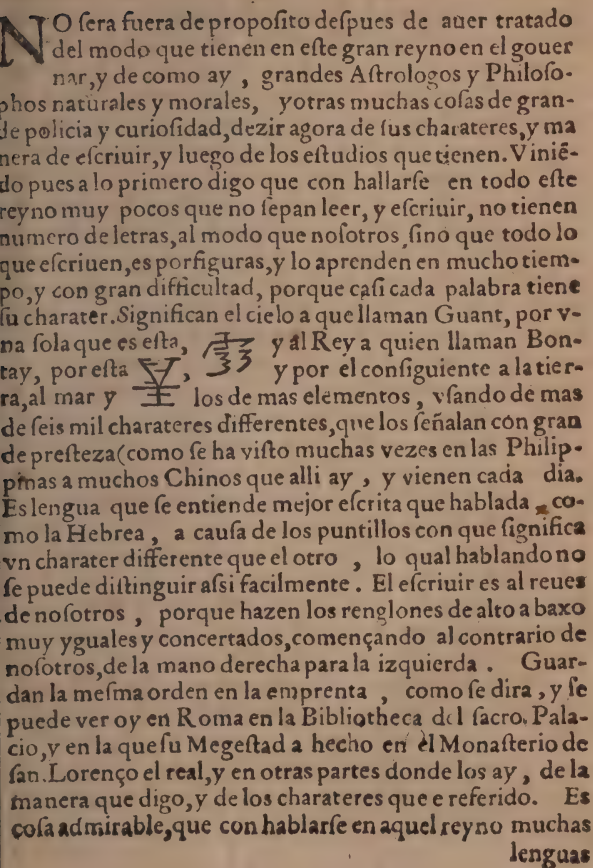 NO ſera fuera de propoſito deſpues de auer tratado
del modo que tienen en eſte gran reyno en el gouer
nar,y de como ay , grandes Aſtrologos y Philoſo-
phos naturales y morales, yotras muchas coſas de gran-
de policia y curioſidad,dezir agora de ſus charateres,y ma
nera de eſcriuir,y luego de los eſtudios que tienen. Vinié-
do pues a lo primero digo que con hallarſe en todo eſte
reyno muy pocos que no ſepan leer, y eſcriuir, no tienen
numero de letras,al modo que noſotros ſino que todo lo
que eſcriuen,es porfiguras,y lo aprenden en mucho tiem-
po,y con gran difficultad, porque caſi cada palabra tiene
ſu charater.Significan el cielo a que llaman Guant, por v-
na ſola que es eſta, y al Rey a quien llaman Bon-
tay, por eſta , y por el conſiguiente a la tier-
ra,al mar y los de mas elementos , vſando de mas
de ſeis mil charateres differentes,que los ſeñalan con gran
de preſteza(como ſe ha viſto muchas vezes en las Philip-
pinas a muchos Chinos que alli ay , y vienen cada dia.
Es lengua que ſe entiende mejor eſcrita que hablada , co-
mo la Hebrea , a cauſa de los puntillos con que ſignifica
vn charater differente que el otro , lo qual hablando no
ſe puede diſtinguir aſsi facilmente . El eſcriuir es al reues
de noſotros , porque hazen los renglones de alto a baxo
muy yguales y concertados,començando al contrario de
noſotros,de la mano derecha para la izquierda . Guar-
dan la meſma orden en la emprenta , como ſe dira , y ſe
puede ver oy en Roma en la Bibliotheca del ſacro. Pala-
cio,y en la que ſu Megeſtad a hecho en èl Monaſterio de
ſan.Lorenço el real,y en otras partes donde los ay , de la
manera que digo,y de los charateres que e referido. Es
coſa admirable,que con hablarſe en aquel reyno muchas
lenguas